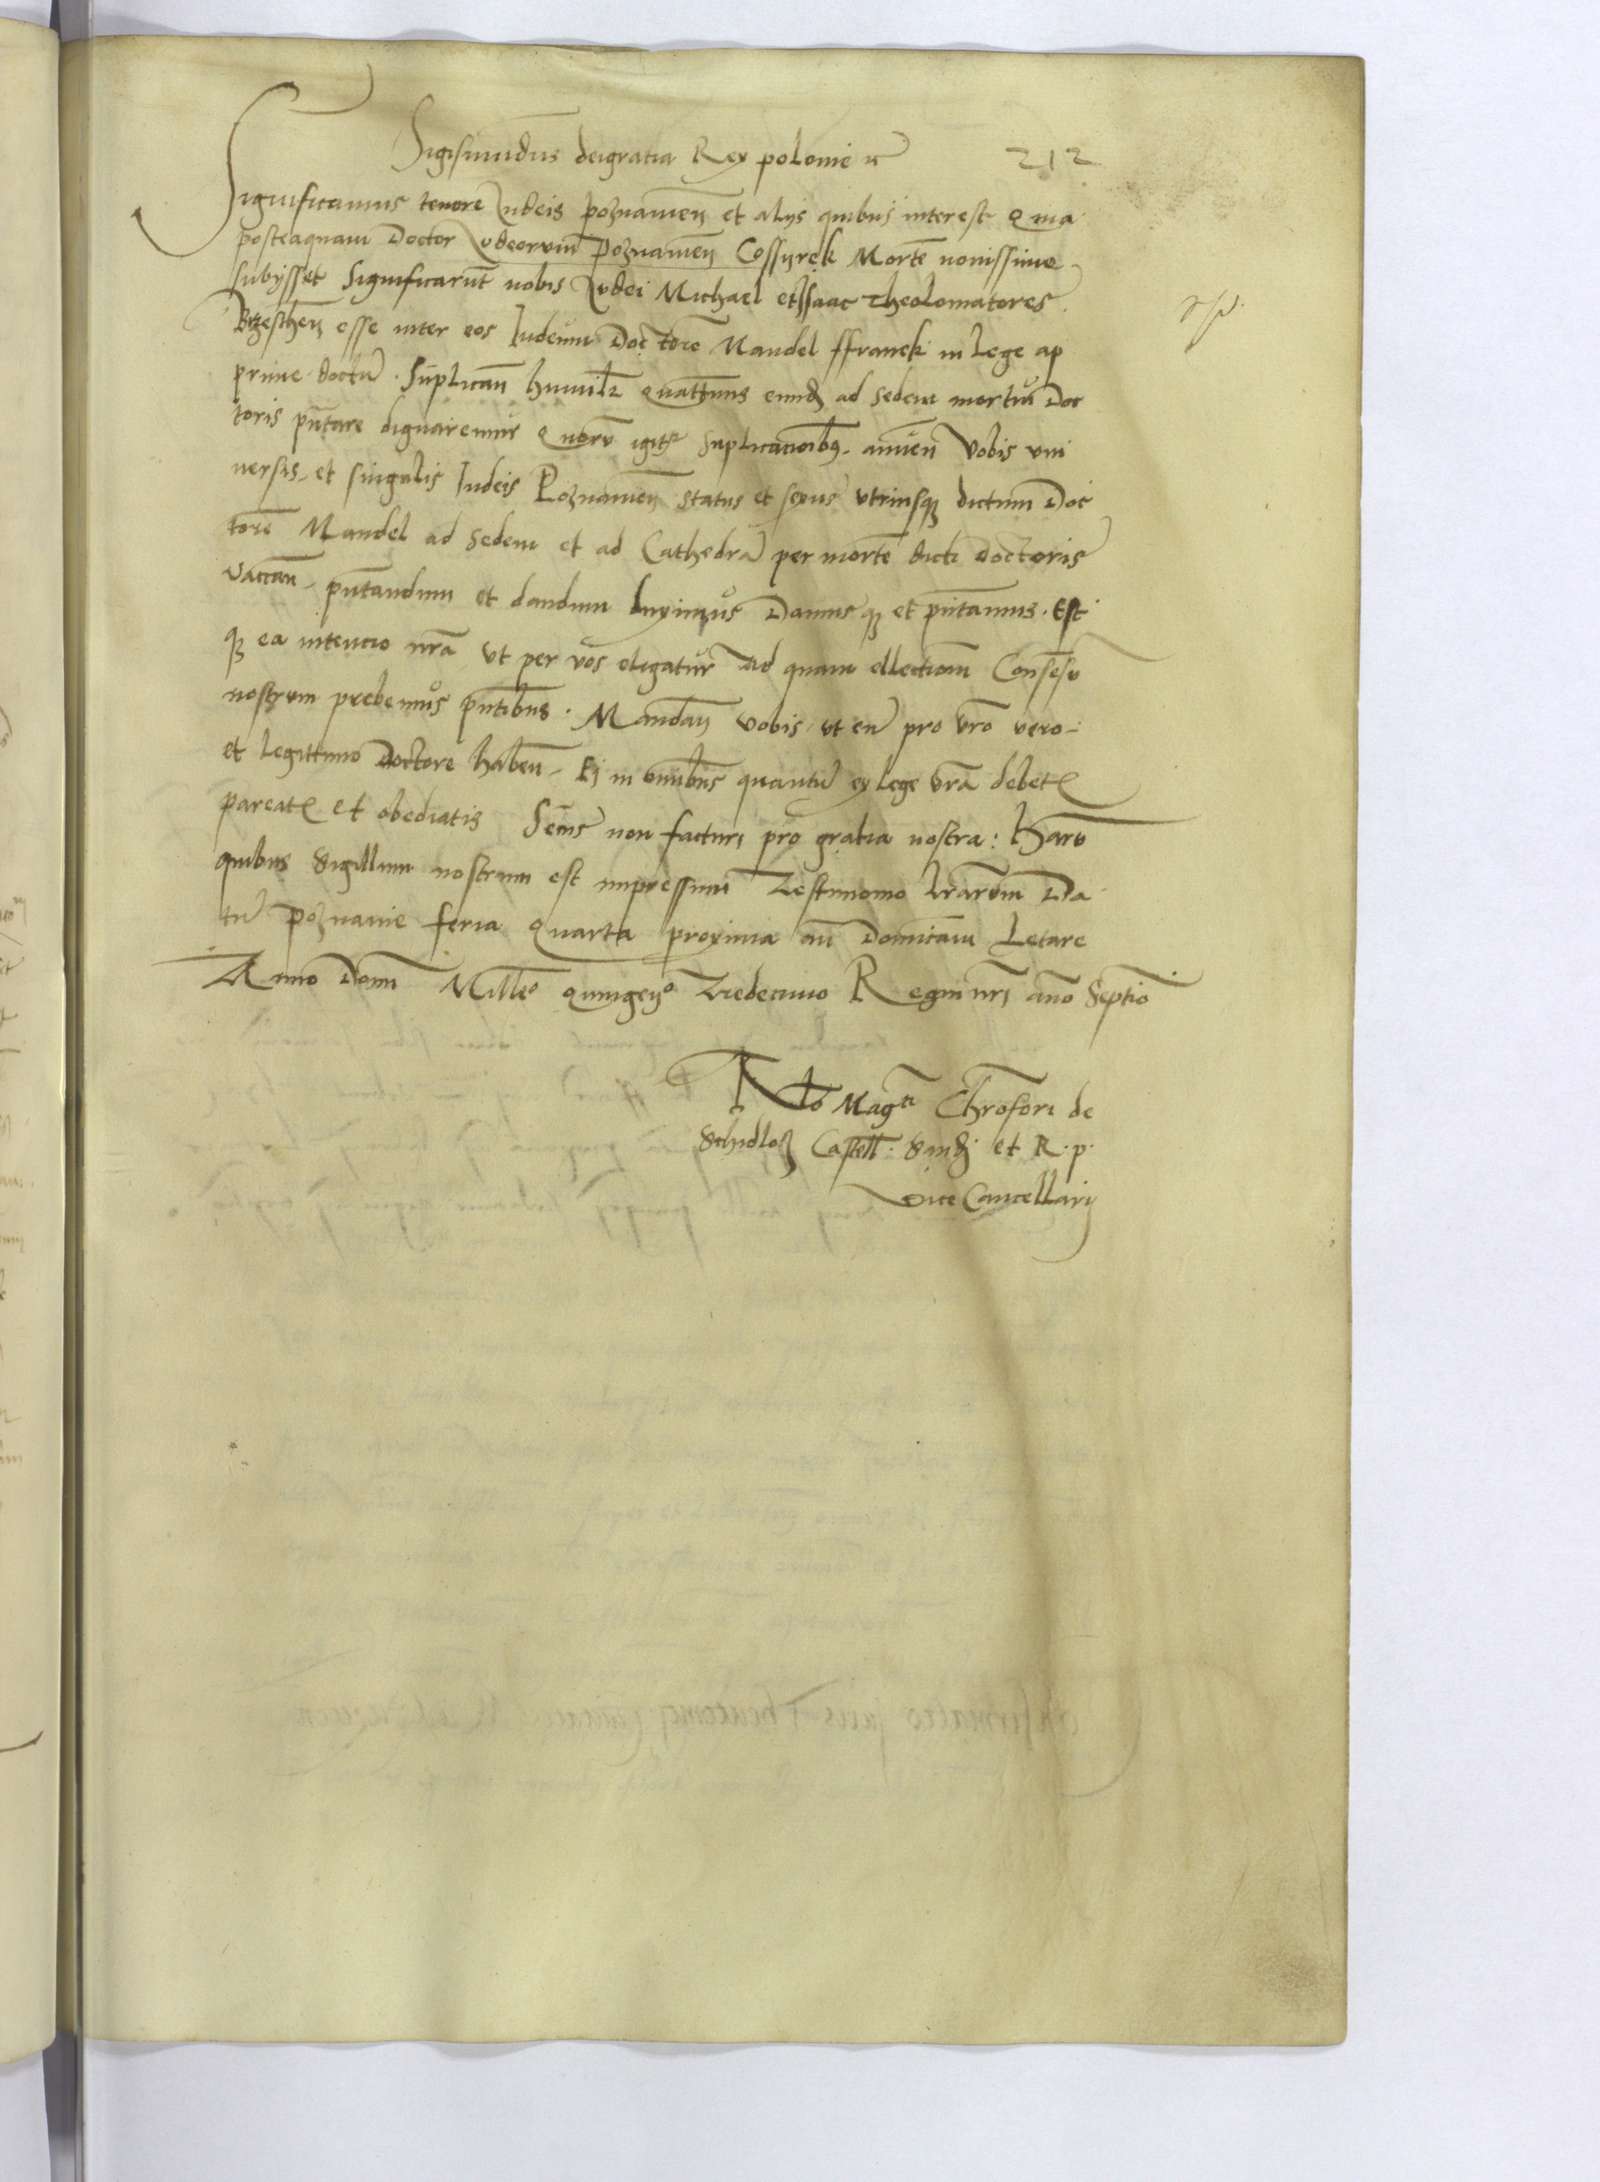 Sigismūdus deigratia Rex polonie ꝛc̄
212
Significamus tenore Iudeis poznanień et alijs quibus interest Quia
posteaquam Doctor Iudeorum poznanień Cossyrek Mortē nouissime
subijsset Significarūt nobis Iudei Michael et Isaac Theolomatores
Brzesthēn esse inter eos Iudeum Doctorē Mandel ffranek in lege ap
prime doctū. Suplicań humilr quattenus eundē ad sedem mortui Doc
toris pn̄tare dignaremur Quorū igitr suplicacioībus annuen̄ Vobis vni
uersis et singulis Iudeis Poznanień status et sexus vtriusq dictum Doc
torē Mandel ad Sedem et ad Cathedrā per mortē dicti doctoris
vaccan̄ pn̄tandum et dandum duximus Damusq et pn̄tamus. Est
q ea intencio nr̄a vt per vos eligatur Ad quam ellectionem Consēsū
nostrum prebemus pn̄tibus. Mandań vobis vt eū pro vr̄o vero
et legittimo doctore habeń. Ei in om̄ibus quantū ex lege vr̄a debetꝭ
pareatꝭ et obediatis Secus non facturi pro gratia nostra: Harū
quibus Sigillum nostrum est impressum Testimonio lr̄arum Da
tū poznanie feria Quarta proxima an̄ Dominicam Letare
Anno Domī Milleº quingeńº Tredecimo Regni nr̄i an̄o Septīo
Rlō Magci Chrōfori de
Schidlow Castell. Sandē et R. p.
vice Cancellarij